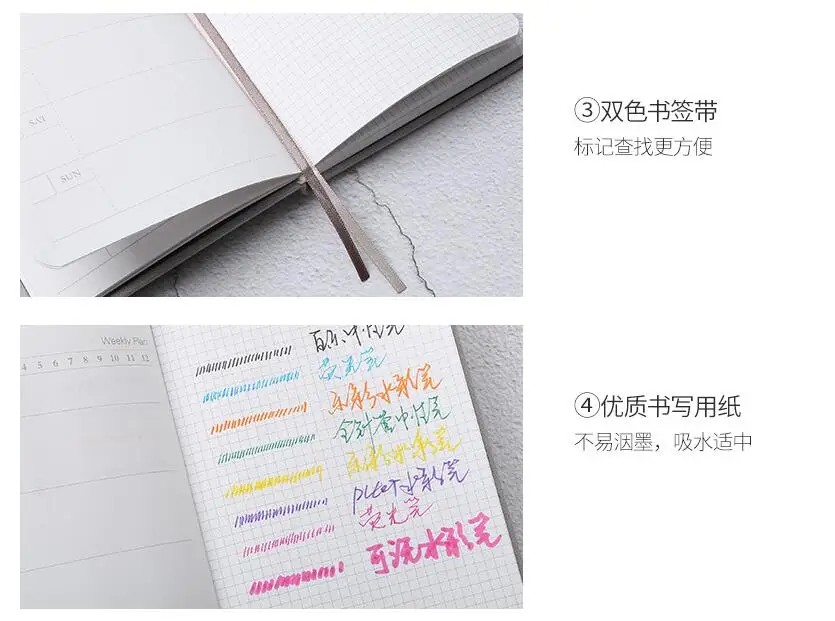 ③双色书签带
标记查找更方便
SAT
SUN
④优质书写用纸
不易洇墨，吸水适中
Weekly Plan
4 5 6 7 8 9 10 11 12
百乐中性笔
荧光笔
水彩笔
中性笔
水彩笔
水彩笔
荧光笔
可洗水彩笔